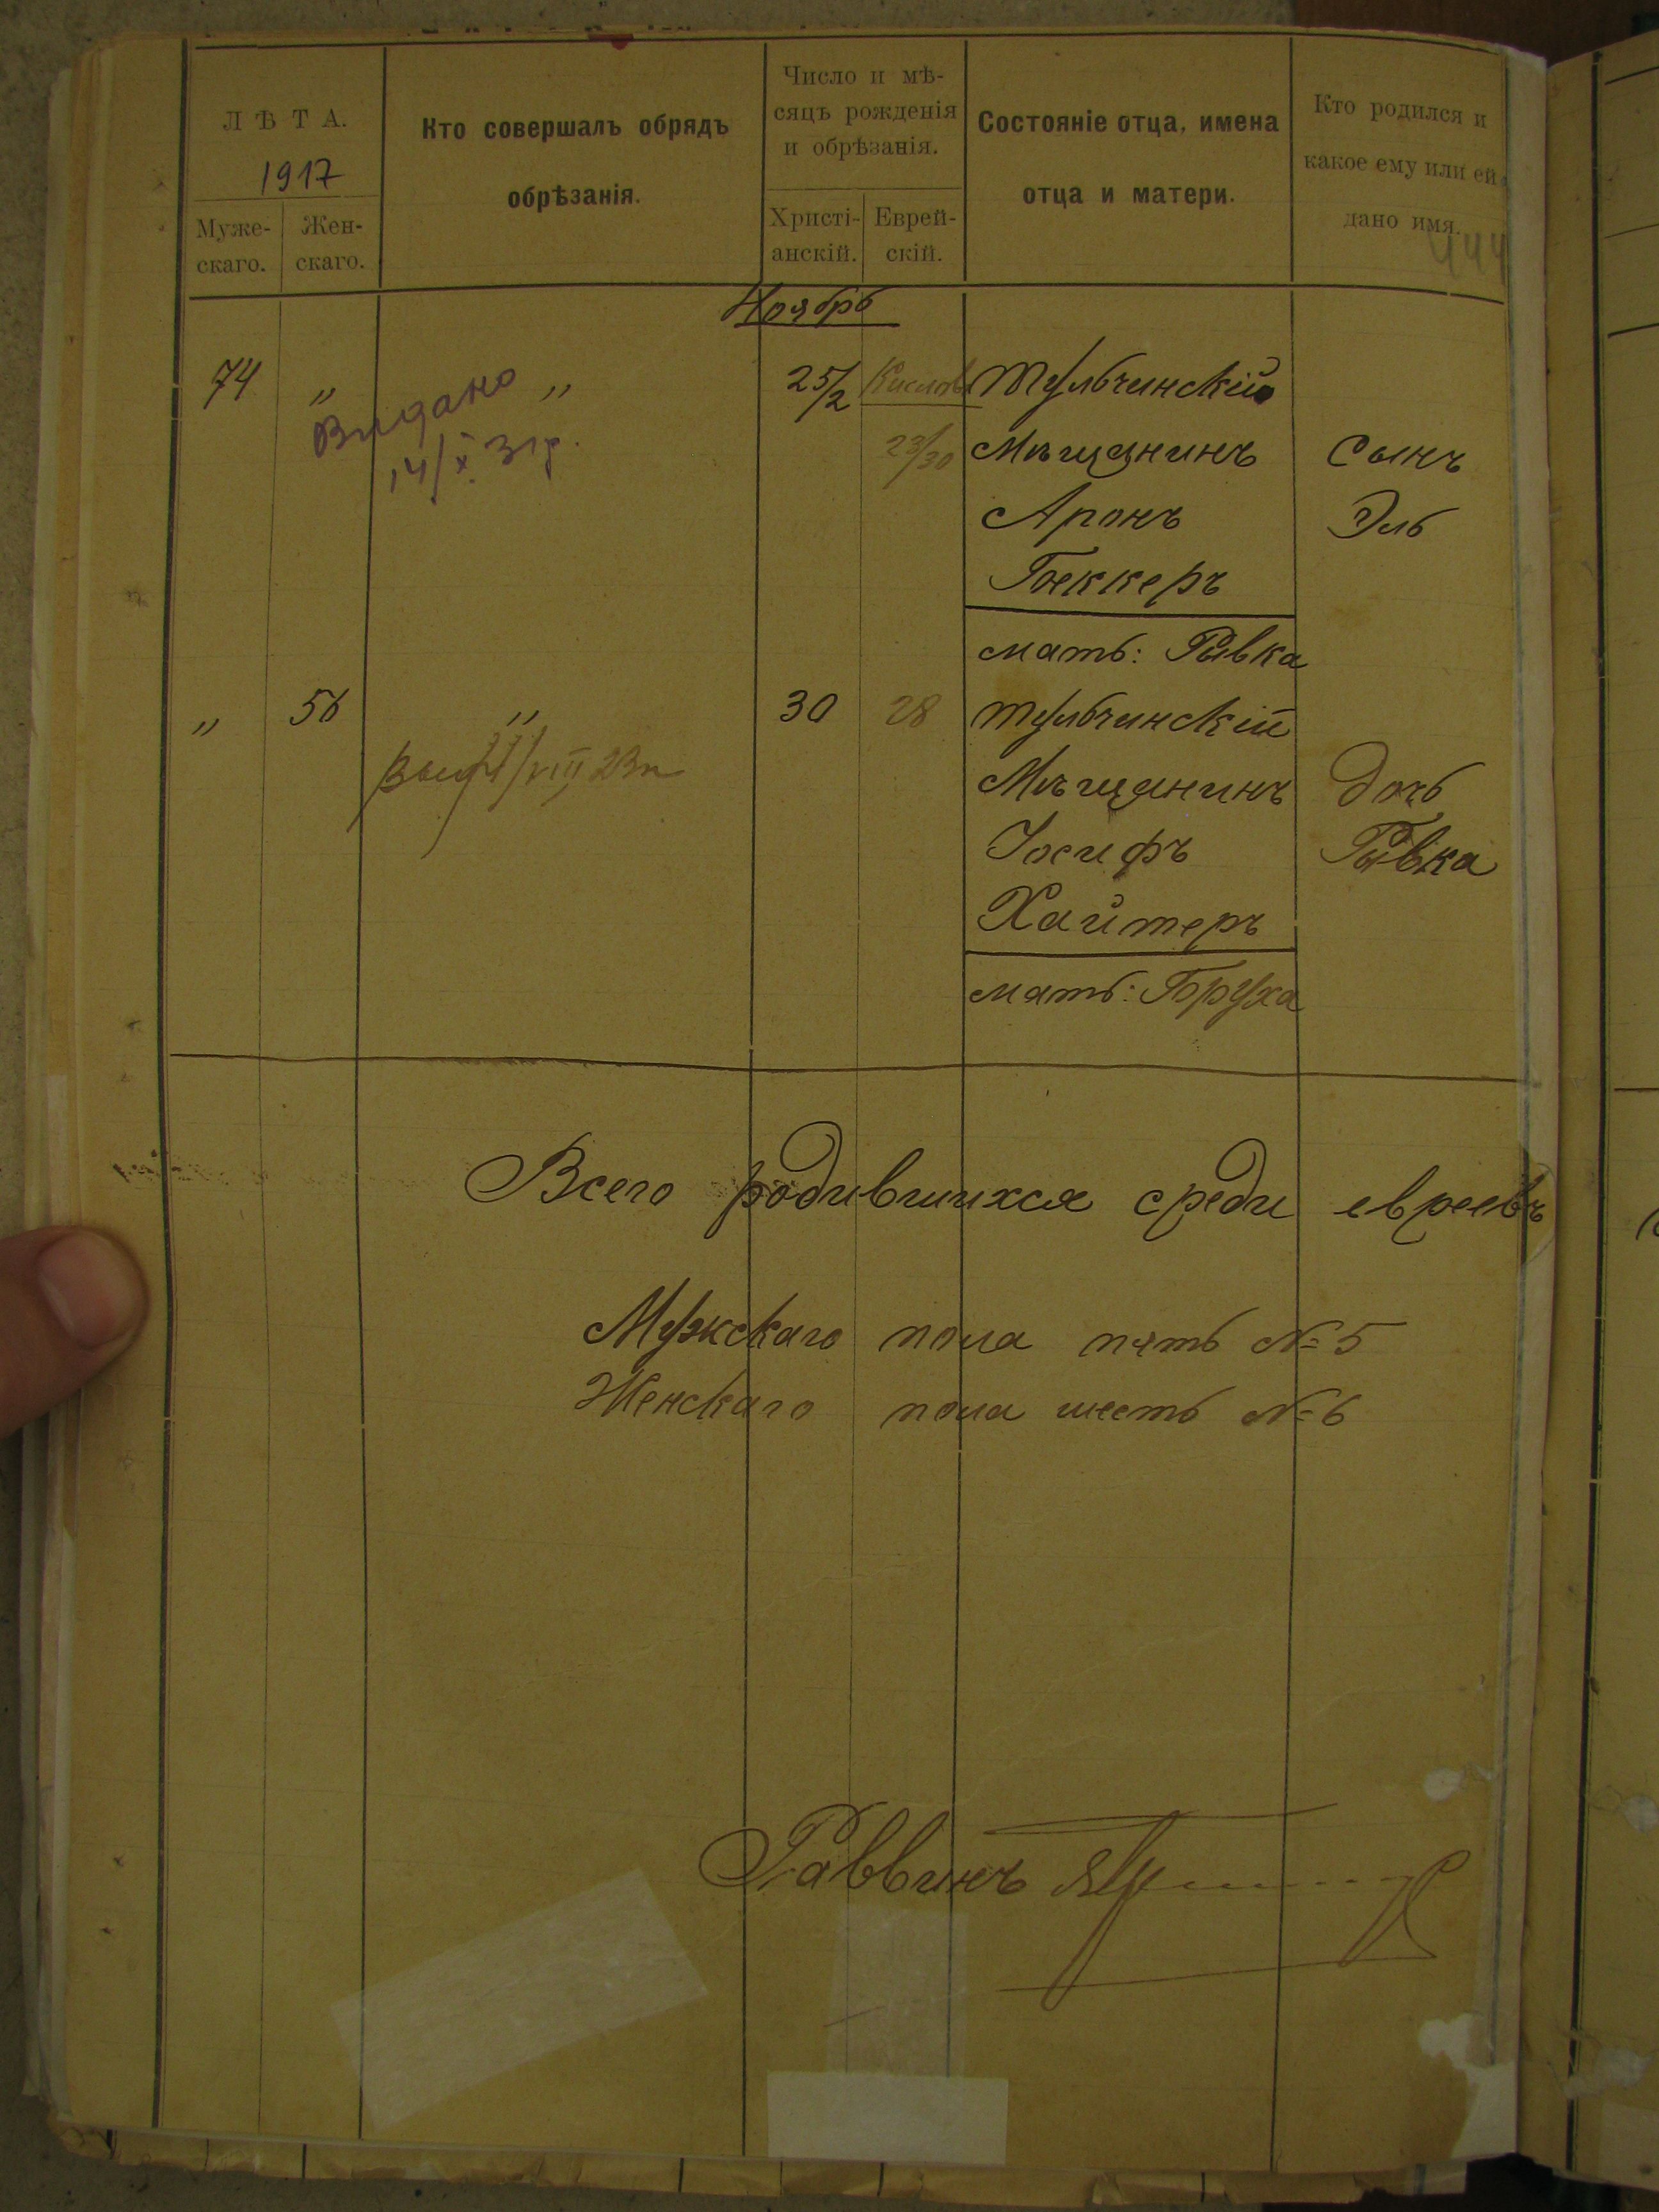 ЛѢТА.
1917
Муже-
скаго.
Жен-
скаго.
Кто совершалъ обрядъ
обрѣзанія.
Число и мѣ-
сяцъ рожденія
и обрѣзанія.
Христі-
анскій.
Еврей-
скій.
Состояніе отца, имена
отца и матери.
Кто родился и
какое ему или ей
дано имя.
444
Ноябрь
74 " " 25/2 Кислевъ Тульчинскій
Видано
14/X 31р.
23/30 Мѣщанинъ Сынъ
Аронъ Эль
Беккеръ
мать: Рывка
" 56 " 30 28 Тульчинскій
VIII 23
Мѣщанинъ Дочь
Іосифъ Рывка
Хайтеръ
мать: Бруха
Всего родившихся среди евреевъ
Мужскаго пола пять №5
Женскаго пола шесть №6
Раввинъ